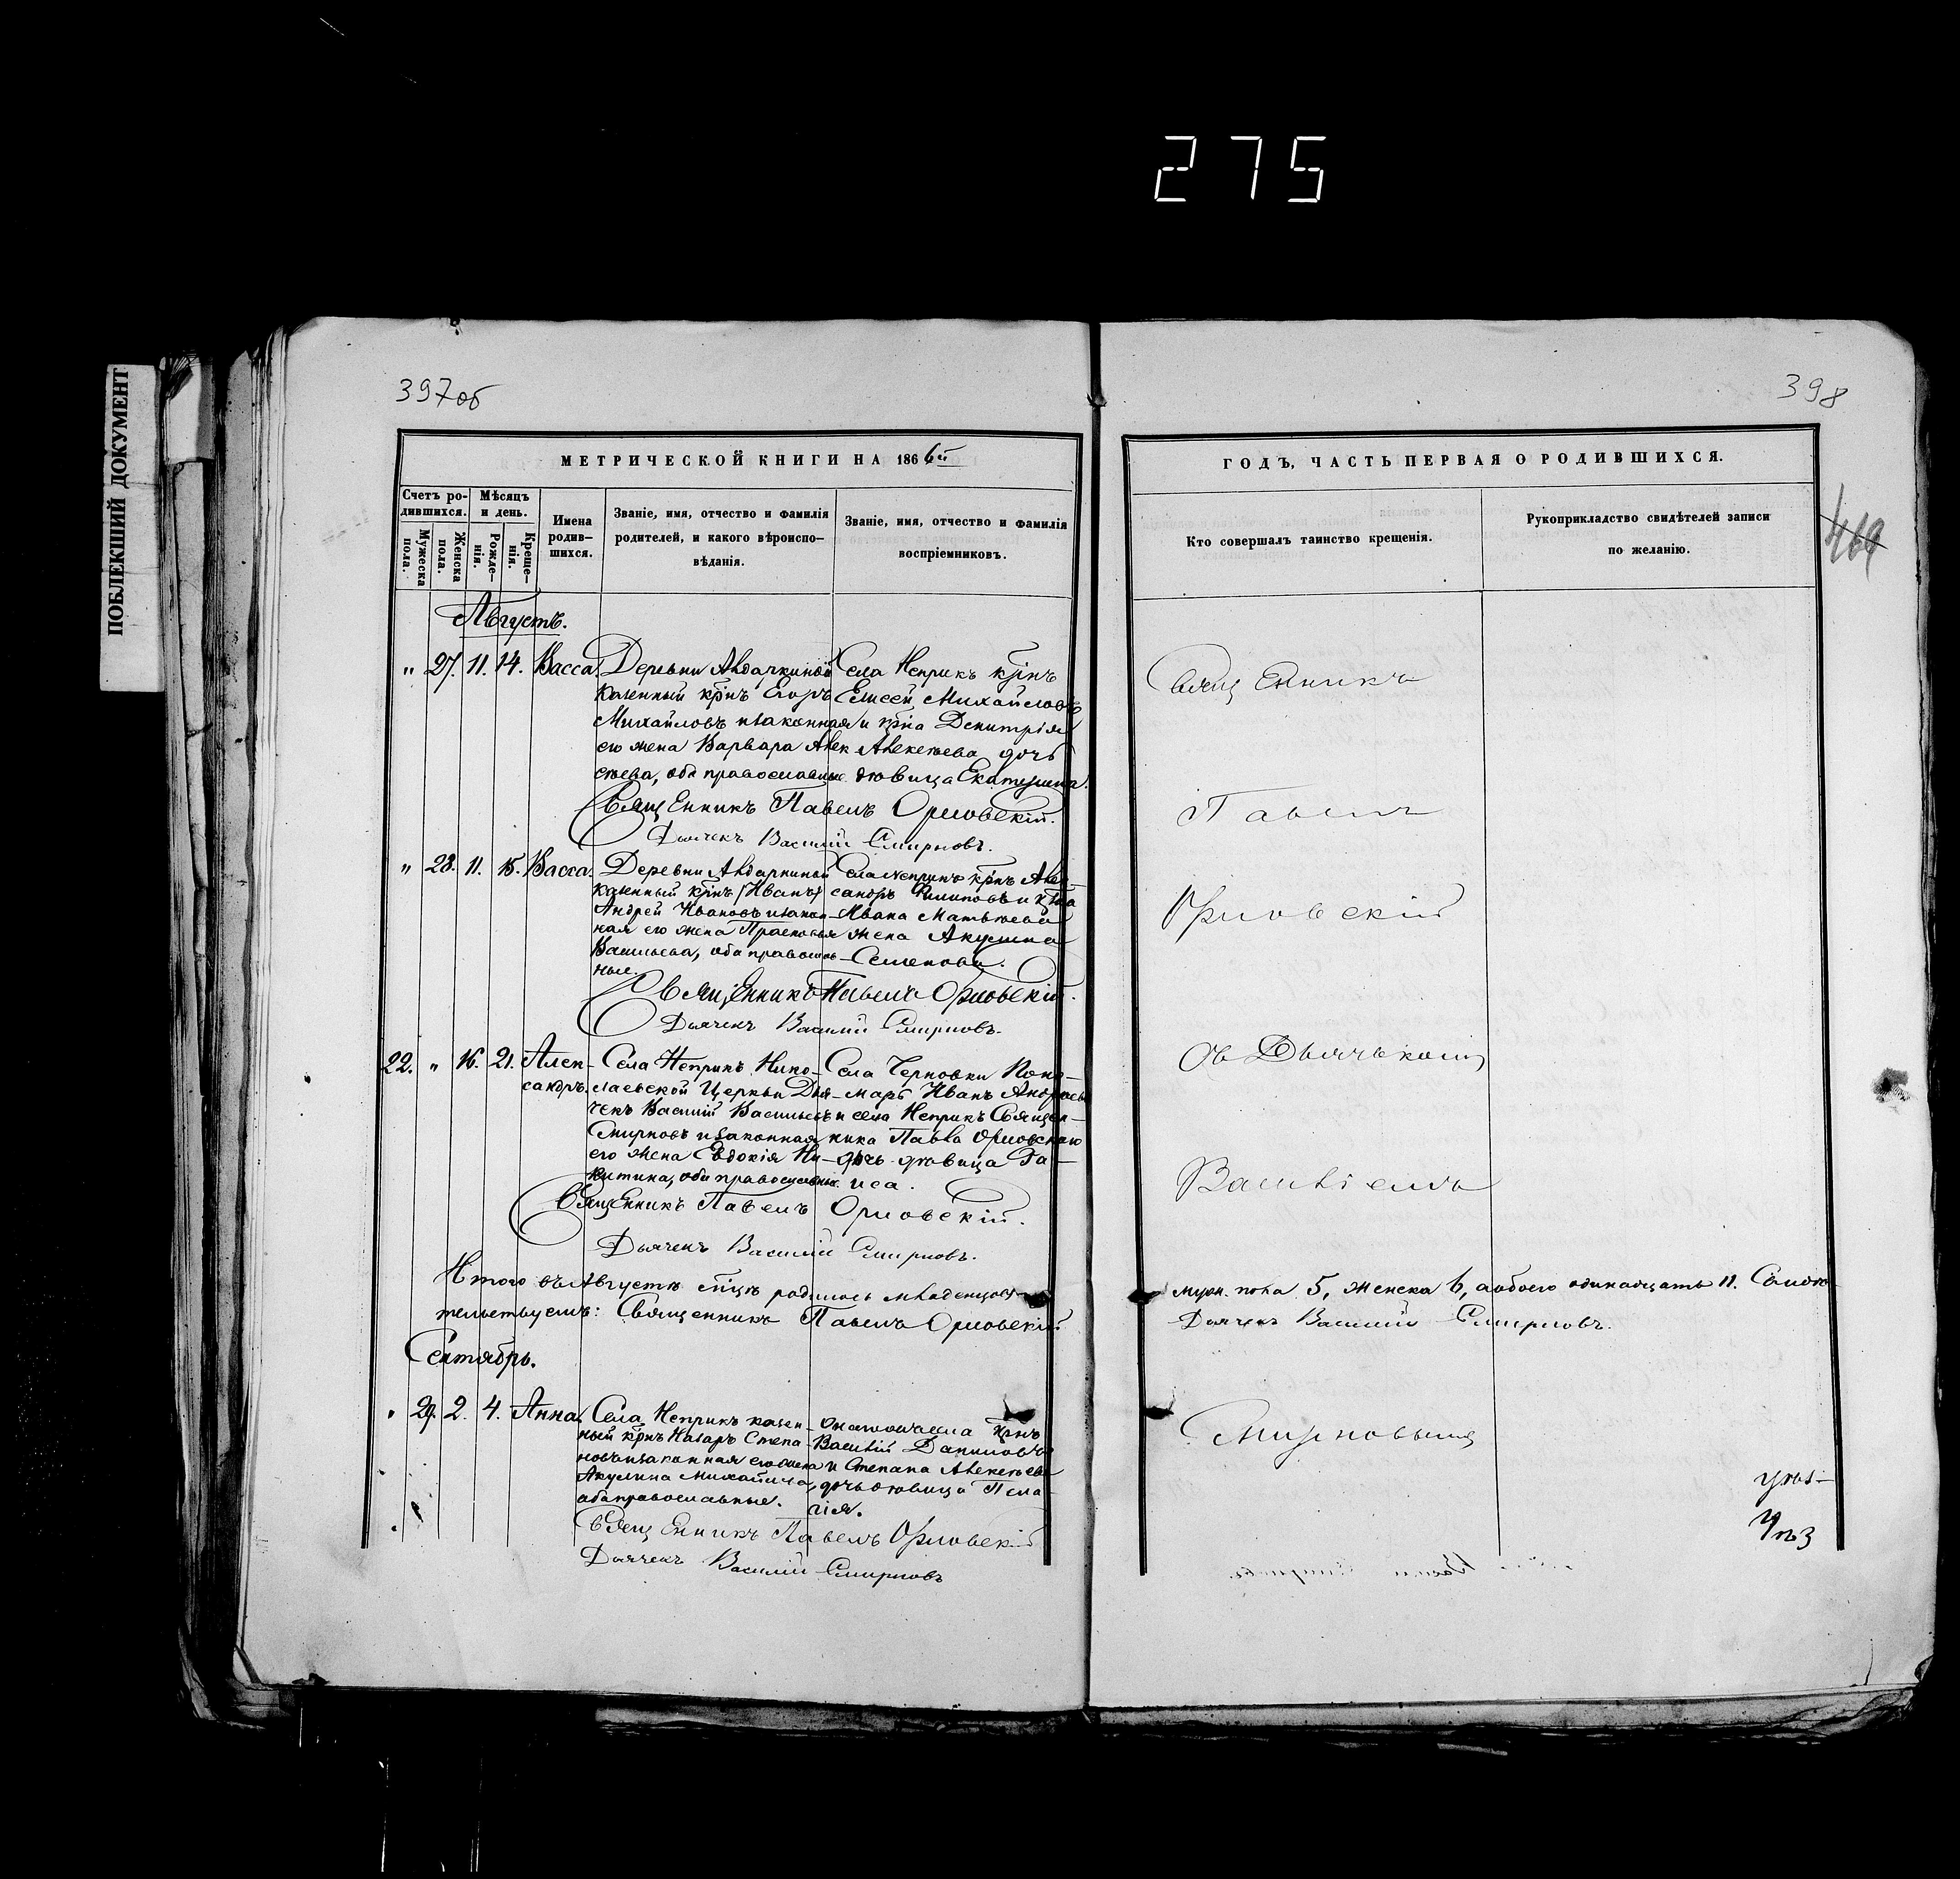 275
ПОБЛЕКШИЙ ДОКУМЕНТ
397об
398
МЕТРИЧЕСКОЙ КНИГИ НА 1866й
ГОДЪ, ЧАСТЬ ПЕРВАЯ О РОДИВШИХСЯ.
469
Счетъ ро-
дившихся.
Мужеска
пола.
Женска
пола.
Мѣсяцъ
и день.
Рожде-
нія.
Креще-
нія.
Имена
родив-
шихся.
Званіе, имя, отчество и фамилія
родителей, и какого вѣроиспо-
вѣданія.
Званіе, имя, отчество и фамилія
воспріемниковъ.
Кто совершалъ таинство крещенія.
Рукоприкладство свидѣтелей записи
по желанію.
Августъ.
" 27. 11. 14. Васса.
Деревни Авдачкиной
казенный крнъ Егоръ
Михайловъ и законная
его жена Варвара Алек
сѣева, оба православные
Села Неприкъ крнъ
Елисей Михайловъ
и крна Димитрія
Алексѣева дочь
дѣвица Екатерина.
Священникъ Павелъ Орловскій.
Дьячекъ Василій Смирновъ.
" 28. 11. 15. Васса.
Деревни Авдачкиной
казенный крнъ (Иванъ)
Андрей Ивановъ и закон-
ная его жена Прасковья
Васильева, оба православ-
ные.
Села Неприкъ крнъ Алек-
сандръ Филиповъ и крна
Ивана Матвѣева
жена Акулина
Семенова.
Священникъ Павелъ Орловскій.
Дьячекъ Василій Смирновъ.
22. " 16. 21. Алек-
сандръ.
Села Неприкъ Нико-
лаевской Церкви Дья-
чекъ Василій Васильевъ
Смирновъ и законная
его жена Евдокія Ни-
китина, оба православные.
Села Черновки Поно-
марь Иванъ Андреевъ
и села Неприкъ Священ-
ника Павла Орловскаго
дочь дѣвица Ра-
иса.
Священникъ Павелъ Орловскій.
Дьячекъ Василій Смирновъ.
Итого въ Августѣ мцѣ родилось младенцовъ
муж. пола 5, женска 6, а обоего одинадцать 11. Свидѣ-
тельствуемъ: Священникъ Павелъ Орловскій
Дьячекъ Василій Смирновъ.
Сентябрь.
" 29. 2. 4. Анна.
Села Неприкъ казен-
ный крнъ Назаръ Степа-
новъ и законная его жена
Акулина Михайлова,
оба православные.
Василій Даниловъ
и Степана Алексѣева
дочь дѣвица Пела-
гія.
Священникъ Павелъ Орловскій
Дьячекъ Василій Смирновъ
Священникъ
Павелъ
Орловскій
съ Дьячькомъ
Василіемъ
Смирновымъ